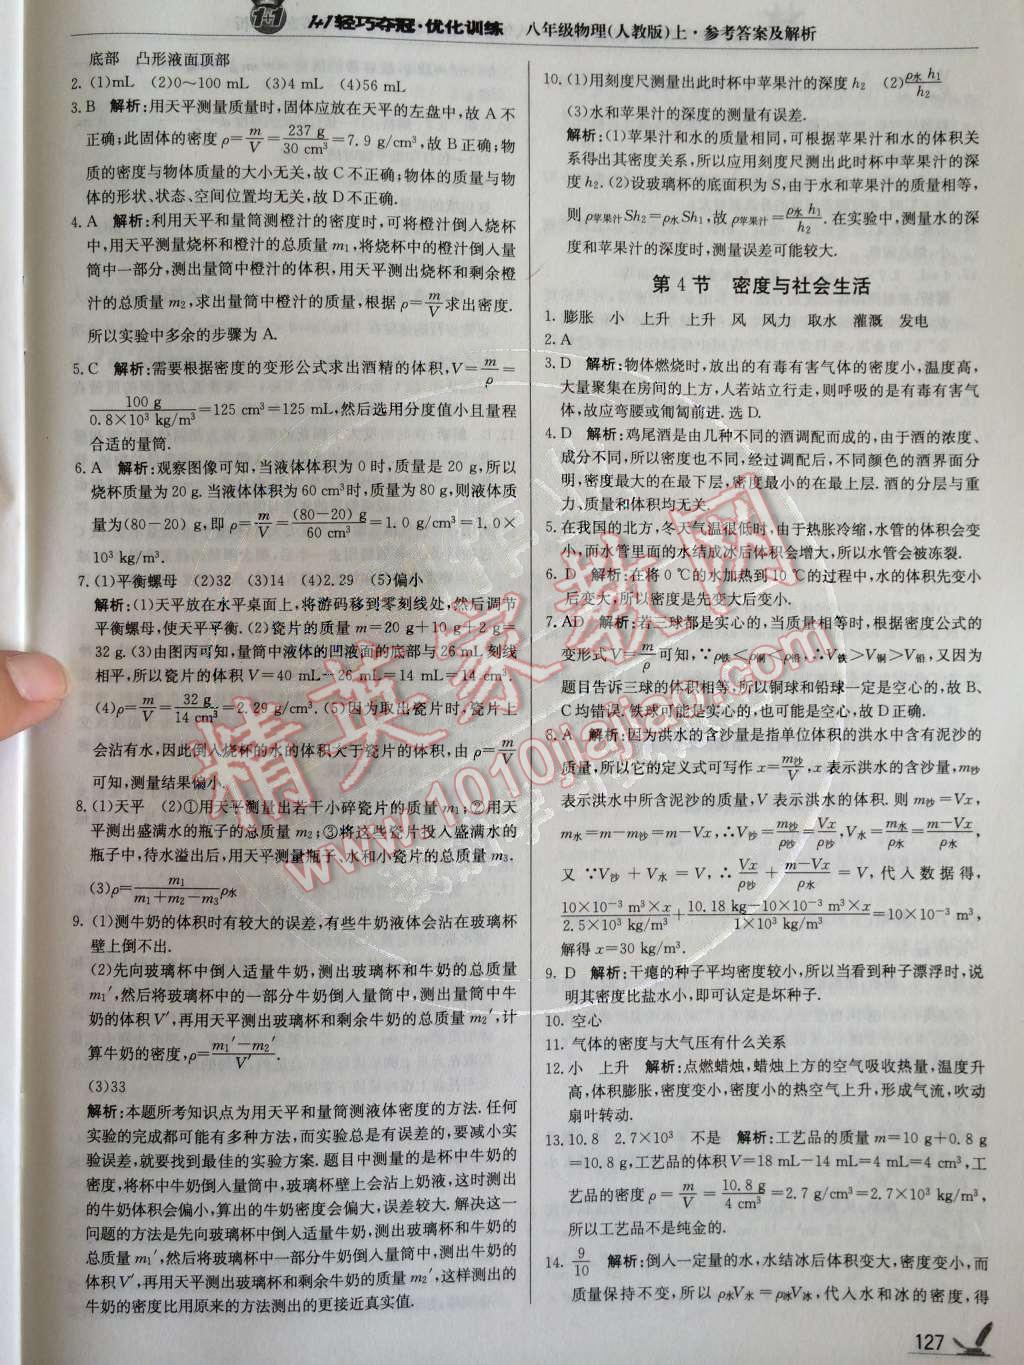 1+1轻巧夺冠·优化训练 八年级物理(人教版)上·参考答案及解析
底部 凸形液面顶部
2. (1)mL (2)0～100 mL (3)4 mL (4)56 mL
3. B 解析:用天平测量质量时,固体应放在天平的左盘中,故 A 不
正确;此固体的密度 ρ=m/V=237 g/30 cm³=7.9 g/cm³,故 B 正确;物
质的密度与物体质量的大小无关,故 C 不正确;物体的质量与物
体的形状、状态、空间位置均无关,故 D 不正确.
4. A 解析:利用天平和量筒测橙汁的密度时,可将橙汁倒入烧杯
中,用天平测量烧杯和橙汁的总质量 m₁,将烧杯中的橙汁倒入量
筒中一部分,测出量筒中橙汁的体积,用天平测出烧杯和剩余橙
汁的总质量 m₂,求出量筒中橙汁的质量,根据 ρ=m/V求出密度.
所以实验中多余的步骤为 A.
5. C 解析:需要根据密度的变形公式求出酒精的体积,V=m/ρ=
100 g/0.8×10³ kg/m³=125 cm³=125 mL,然后选用分度值小且量程
合适的量筒.
6. A 解析:观察图像可知,当液体体积为 0 时,质量是 20 g,所以
烧杯质量为 20 g.当液体体积为 60 cm³时,质量为 80 g,则液体质
量为(80－20) g,即 ρ=m/V=(80－20) g/60 cm³=1.0 g/cm³=1.0×
10³ kg/m³.
7. (1)平衡螺母 (2)32 (3)14 (4)2.29 (5)偏小
解析:(1)天平放在水平桌面上,将游码移到零刻线处,然后调节
平衡螺母,使天平平衡.(2)瓷片的质量 m=20 g+10 g+2 g=
32 g.(3)由图丙可知,量筒中液体的凹液面的底部与 26 mL 刻线
相平,所以瓷片的体积 V=40 mL－26 mL=14 mL=14 cm³.
(4)ρ=m/V=32 g/14 cm³=2.29 g/cm³.(5)因为取出瓷片时,瓷片上
会沾有水,因此倒入烧杯的水的体积大于瓷片的体积,由 ρ=m/V
可知,测量结果偏小.
8. (1)天平 (2)①用天平测量出若干小碎瓷片的质量 m₁;②用天
平测出盛满水的瓶子的总质量 m₂;③将这些瓷片投入盛满水的
瓶子中,待水溢出后,用天平测量瓶子、水和小瓷片的总质量 m₃.
(3)ρ=m₁/(m₁+m₂－m₃)ρ水
9. (1)测牛奶的体积时有较大的误差,有些牛奶液体会沾在玻璃杯
壁上倒不出.
(2)先向玻璃杯中倒入适量牛奶,测出玻璃杯和牛奶的总质量
m₁′,然后将玻璃杯中的一部分牛奶倒入量筒中,测出量筒中牛
奶的体积 V′,再用天平测出玻璃杯和剩余牛奶的总质量 m₂′,计
算牛奶的密度,ρ=(m₁′－m₂′)/V′.
(3)33
解析:本题所考知识点为用天平和量筒测液体密度的方法.任何
实验的完成都可能有多种方法,而实验总是有误差的,要减小实
验误差,就要找到最佳的实验方案.题目中测量的是杯中牛奶的
密度,将杯中牛奶倒入量筒中,玻璃杯壁上会沾上奶液,这时测出
的牛奶体积会偏小,算出的牛奶密度会偏大,误差较大.解决这一
问题的方法是先向玻璃杯中倒入适量牛奶,测出玻璃杯和牛奶的
总质量 m₁′,然后将玻璃杯中一部分牛奶倒入量筒中,测出牛奶的
体积 V′,再用天平测出玻璃杯和剩余牛奶的质量 m₂′,这样测出的
牛奶的密度比用原来的方法测出的更接近真实值.
10. (1)用刻度尺测量出此时杯中苹果汁的深度 h₂ (2)ρ水h₁/h₂
(3)水和苹果汁的深度的测量有误差.
解析:(1)苹果汁和水的质量相同,可根据苹果汁和水的体积关
系得出其密度关系,所以应用刻度尺测出此时杯中苹果汁的深
度 h₂.(2)设玻璃杯的底面积为 S,由于水和苹果汁的质量相等,
则 ρ苹果汁Sh₂=ρ水Sh₁,故 ρ苹果汁=ρ水h₁/h₂.在实验中,测量水的深
度和苹果汁的深度时,测量误差可能较大.
第 4 节 密度与社会生活
1. 膨胀 小 上升 上升 风 风力 取水 灌溉 发电
2. A
3. D 解析:物体燃烧时,放出的有毒有害气体的密度小,温度高,
大量聚集在房间的上方,人若站立行走,则呼吸的是有毒有害气
体,故应弯腰或匍匐前进.选 D.
4. D 解析:鸡尾酒是由几种不同的酒调配而成的,由于酒的浓度、
成分不同,所以密度也不同,经过调配后,不同颜色的酒界面分
明,密度最大的在最下层,密度最小的在最上层.酒的分层与重
力、质量和体积均无关.
5. 在我国的北方,冬天气温很低时,由于热胀冷缩,水管的体积会变
小,而水管里面的水结成冰后体积会增大,所以水管会被冻裂.
6. D 解析:在将 0 ℃的水加热到 10 ℃的过程中,水的体积先变小
后变大,所以密度是先变大后变小.
7. AD 解析:若三球都是实心的,当质量相等时,根据密度公式的
变形式 V=m/ρ可知,∵ρ铁<ρ铜<ρ铅,∴V铁>V铜>V铅,又因为
题目告诉三球的体积相等,所以铜球和铅球一定是空心的,故 B、
C 均错误.铁球可能是实心的,也可能是空心,故 D 正确.
8. A 解析:因为洪水的含沙量是指单位体积的洪水中含有泥沙的
质量,所以它的定义式可写作 x=m沙/V,x 表示洪水的含沙量,m沙
表示洪水中所含泥沙的质量,V 表示洪水的体积.则 m沙=Vx,
m水=m－m沙=m－Vx,∴V沙=m沙/ρ沙=Vx/ρ沙,V水=m水/ρ水=(m－Vx)/ρ水,
又 ∵V沙+V水=V,∴Vx/ρ沙+(m－Vx)/ρ水=V,代入数据得,
10×10⁻³ m³×x/2.5×10³ kg/m³+(10.18 kg－10×10⁻³ m³×x)/1×10³ kg/m³=10×10⁻³ m³,
解得 x=30 kg/m³.
9. D 解析:干瘪的种子平均密度较小,所以当看到种子漂浮时,说
明其密度比盐水小,即可认定是坏种子.
10. 空心
11. 气体的密度与大气压有什么关系
12. 小 上升 解析:点燃蜡烛,蜡烛上方的空气吸收热量,温度升
高,体积膨胀,密度变小,密度小的热空气上升,形成气流,吹动
扇叶转动.
13. 10.8 2.7×10³ 不是 解析:工艺品的质量 m=10 g+0.8 g
=10.8 g,工艺品的体积 V=18 mL－14 mL=4 mL=4 cm³,工
艺品的密度 ρ=m/V=10.8 g/4 cm³=2.7 g/cm³=2.7×10³ kg/m³,
所以工艺品不是纯金的.
14. 9/10 解析:倒入一定量的水,水结冰后体积变大,密度变小,而
质量保持不变,所以 ρ水V水=ρ冰V冰,代入水和冰的密度,得
127
精英家教网
www.1010jiajiao.com